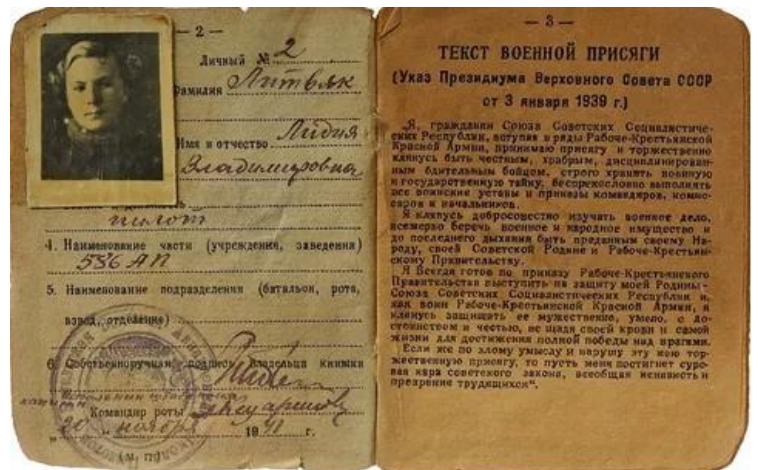 — 2 —
Личный № 2
Фамилия Литвяк
Имя и отчество Лидия
Владимировна
пилот
4. Наименование части (учреждения, заведения)
586 АП
5. Наименование подразделения (батальон, рота,
взвод, отделение)
6. Собственноручная подпись владельца книжки
Командир роты
20 ноября 1941 г.
(М. П.)
— 3 —
ТЕКСТ ВОЕННОЙ ПРИСЯГИ
(Указ Президиума Верховного Совета СССР
от 3 января 1939 г.)
„Я, гражданин Союза Советских Социалистиче-
ских Республик, вступая в ряды Рабоче-Крестьянской
Красной Армии, принимаю присягу и торжественно
клянусь быть честным, храбрым, дисциплинирован-
ным бдительным бойцом, строго хранить военную
и государственную тайну, беспрекословно выполнять
все воинские уставы и приказы командиров, комис-
саров и начальников.
Я клянусь добросовестно изучать военное дело,
всемерно беречь военное и народное имущество и
до последнего дыхания быть преданным своему На-
роду, своей Советской Родине и Рабоче-Крестьян-
скому Правительству.
Я Всегда готов по приказу Рабоче-Крестьянского
Правительства выступить на защиту моей Родины-
Союза Советских Социалистических Республик и,
как воин Рабоче-Крестьянской Красной Армии, я
клянусь защищать ее мужественно, умело, с до-
стоинством и честью, не щадя своей крови и самой
жизни для достижения полной победы над врагами.
Если же по злому умыслу я нарушу эту мою тор-
жественную присягу, то пусть меня постигнет суро-
вая кара советского закона, всеобщая ненависть и
презрение трудящихся“.